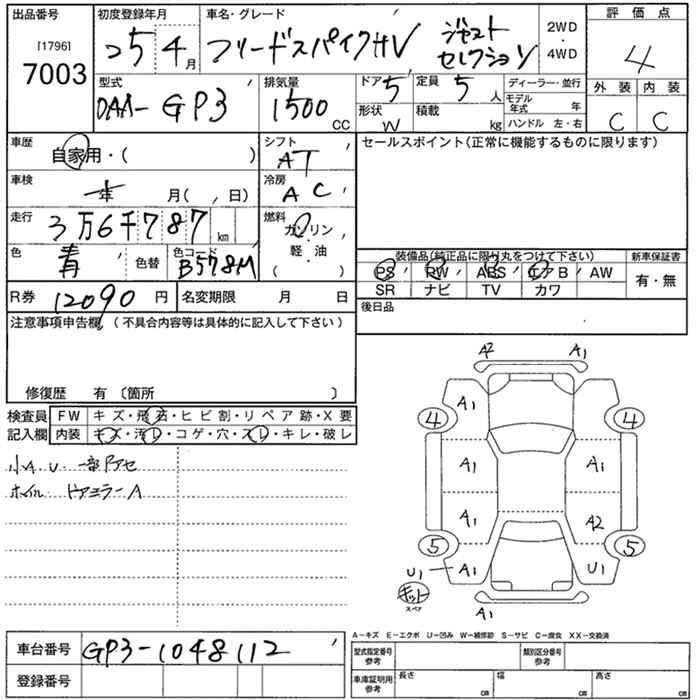 出品番号 初度登録年月 車名・グレード 2WD・4WD 評価点
[1796]
7003 25 4月 フリードスパイクHV ジャスト セレクション 4
型式 排気量 ドア 定員 ディーラー・並行 外装 内装
DAA-GP3 1500 CC 5 5人 モデル年式 年 C C
形状 積載 ハンドル 左・右
W kg
車歴 シフト セールスポイント(正常に機能するものに限ります)
自家用・( ) AT
車検 冷房
年 月( , 日) AC
走行 燃料
3万6千787km ガソリン
色 色替 色コード 軽・油 装備品(純正品に限り丸をつけて下さい) 新車保証書
青 B578M PS PW ABS エアB AW 有・無
SR ナビ TV カワ
R券 12090円 名変期限 月 日 後日品
注意事項申告欄(不具合内容等は具体的に記入して下さい)
修復歴 有 〔箇所 〕
検査員 FW キズ・飛石・ヒビ割・リペア跡・X要
記入欄 内装 キズ・汚レ・コゲ・穴・スレ・キレ・破レ
小A.U. 一部アセ
ホイル ドアミラーA
A2 A1
4 A1 4
A1 A1
A1 A2
5 5
U1 A1 U1
キット
スペア
A1
A-キズ E-エクボ U-凹み W-補修跡 S-サビ C-腐食 XX-交換済
車台番号 GP3-1048112 型式指定番号 参考 類別区分番号 参考
登録番号 車庫証明用 参考 長さ cm 幅 cm 高さ cm